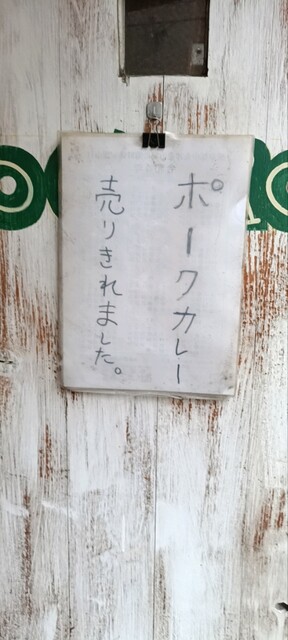 ポークカレー
売りきれました。